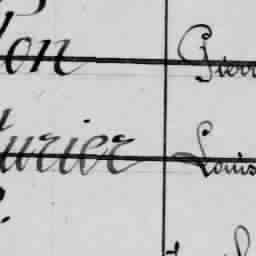 lon Pierr
turier Louis